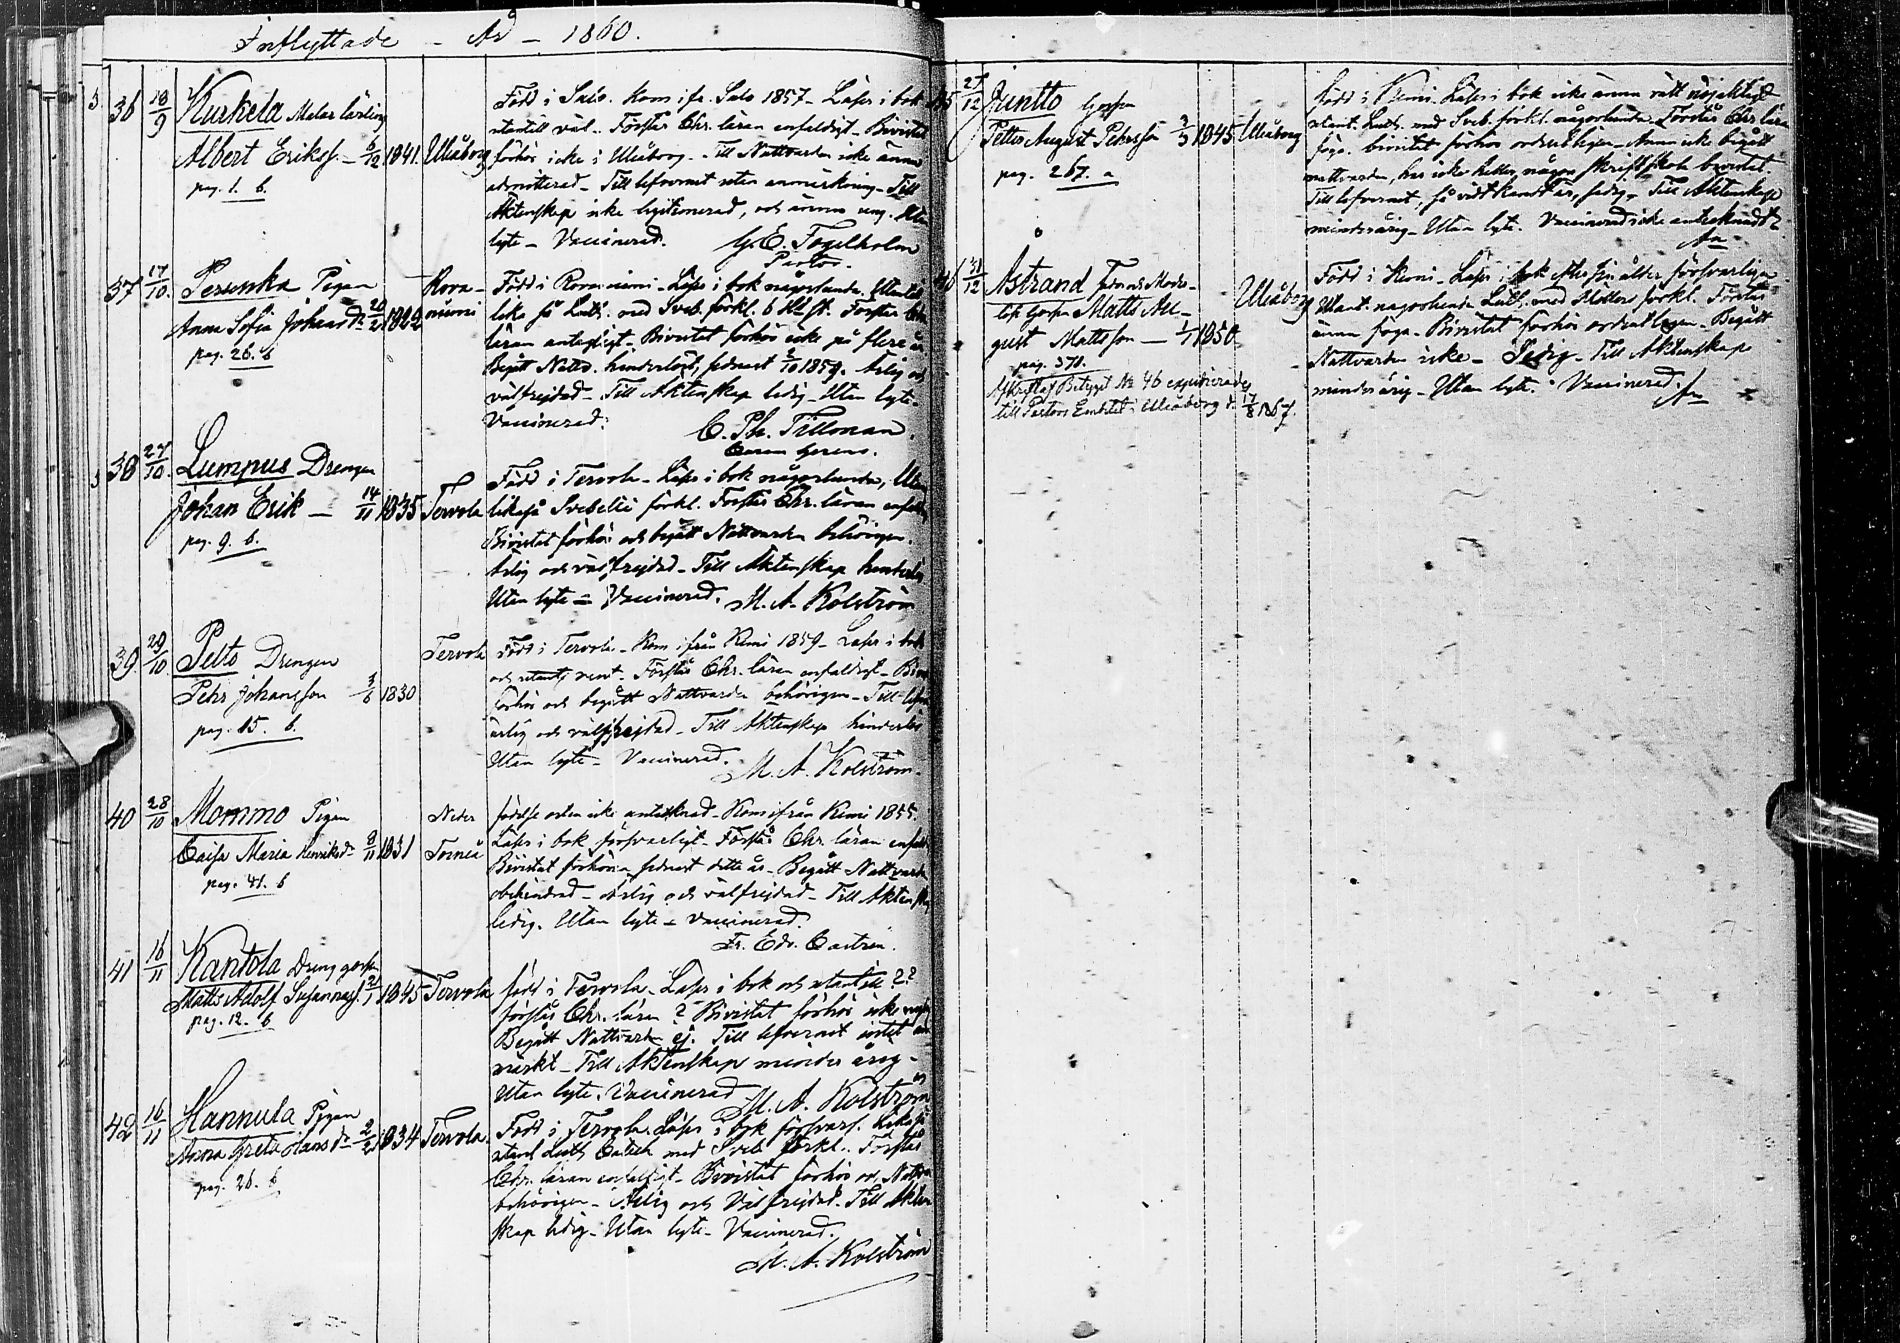 Inflyttade – År – 1860.
36 18/9 Kurkela Målar lärling
Albert Erikss. – 6/12 1841. Uleåborg
pag. 1. b.
Född i Salo. Kom ifr. Salo 1857 – Läser i bok
utantill väl. Förstår Chr. läran enfaldigt – Bivistat
förhör icke i Uleåborg – Till Nattvarden icke ännu
admitterad – Till lefvernet utan anmärkning – Till
Äktenskap icke legitimerad, och ännu ung. Utan
lyte – Vaccinerad. G. E. Fogelholm
Pastor.
37 17/10. Persenka Pigan
Anna Sofia Johansdr 1822
pag. 26. b
Rova-
niemi
Född i Rovaniemi – Läser i bok någorlunda. Utantill
lika så Luth. med Sveb. förkl. 6 H. st. Förstår Chr.
läran enfaldigt. Bivistat förhör icke på flere år
Begått Nattv. hinderlöst, sednast 1859. Ärlig och
välfrejdad – Till Äktenskap ledig – Utan lyte.
Vaccinerad. C. Ph. Tillman.
38 27/10. Lumpus Drengen
Johan Erik – 14/11 1835 Tervola
pag. 9. b.
Född i Tervola – Läser i bok någorlunda, Utan
likaså Svebelii förkl. Förstår Chr. läran enfald
Bivistat förhör och begått Nattvarden behörigen.
Ärlig och välfrejdad – Till Äktenskap hinderlös
Utan lyte – Vaccinerad. M. A. Kolström
39. 29/10 Pelto Drengen
Pehr Johansson 3/6 1830
pag. 15. b.
Tervola
Född i Tervola – Kom ifrån Kemi 1859 – Läser i bok
och utant. rent. Förstår Chr. läran enfaldigt – Biv
förhör och begått Nattvarden behörigen – Till lefv
ärlig och välfrejdad – Till Äktenskap hinderlös
Utan lyte – Vaccinerad.
M. A. Kolström.
40 28/10 Mommo Pigan
Caisa Maria Henriksdr 9/11 1831
pag. 41. b
Neder
Torneå
födelse orten icke antecknad – Kom ifrån Kemi 1855.
Läser i bok försvarligt – Förstår Chr. läran enfald
Bivistat förhören sednast detta år – Begått Nattvard
obehindrad – ärlig och välfrejdad – Till Äktensk
ledig. Utan lyte – Vaccinerad.
Fr. Edv. Castrén.
41 16/11 Kantola Dreng gossen
Matts Adolf Susannas. 1845 Tervola
pag. 12. b
född i Tervola. Läser i bok och utantill ??
förstår Chr. läran ? Bivistat förhör icke
Begått Nattvarden ej. Till lefvernet intet an
märkt – Till Äktenskap minder årig –
Utan lyte. Vaccinerad
M. A. Kolström
42 16/11 Hannula Pigan
Anna Greta Hansdr 1834 Tervola.
pag. 26. b
Född i Tervola. Läser i bok försvarl. Likaså
utant. Luth. Catech. med Sveb. förkl. Förstår
Chr. läran enfaldigt – Bivistat förhör och Nattv
behörigen – Ärlig och Välfrejdad. Till Äkten
skap ledig – Utan lyte – Vaccinerad.
M. A. Kolström
45 27/12 Juntto Gossen
Petter August Pehrsson 1845 Uleåborg
pag. 267. a
född i Kemi. Läser i bok icke ännu rätt nöjaktigt
utant. Luth. med Sveb. förkl. någorlunda. Förstår Chr. lära
föga. bivistat förhör ordentligen – Ännu icke begått
nattvarden, har icke heller någon skriftskola bevistat.
Till lefvernet, så vidt kändt är, ledig – Till Äktenskap
minderårig – Utan lyte. Vaccinerad icke antecknadt
46 31/12 Åstrand
Matts Au-
gust Mattsson – 1/1 1850.
pag. 371.
Uleåborg
Afskrift af Betyget No 46 expedierades
till Pastors Embetet i Uleåborg d. 17/8 1867.
Född i Kemi – Läser i bok efter sin ålder försvarligen
Utant. någorlunda Luth. med Möllers förkl. Förstår
ännu föga – Bivistat förhör ordentligen – Begått
Nattvarden icke – Ledig – Till Äktenskap
minderårig – Utan lyte. Vaccinerad.